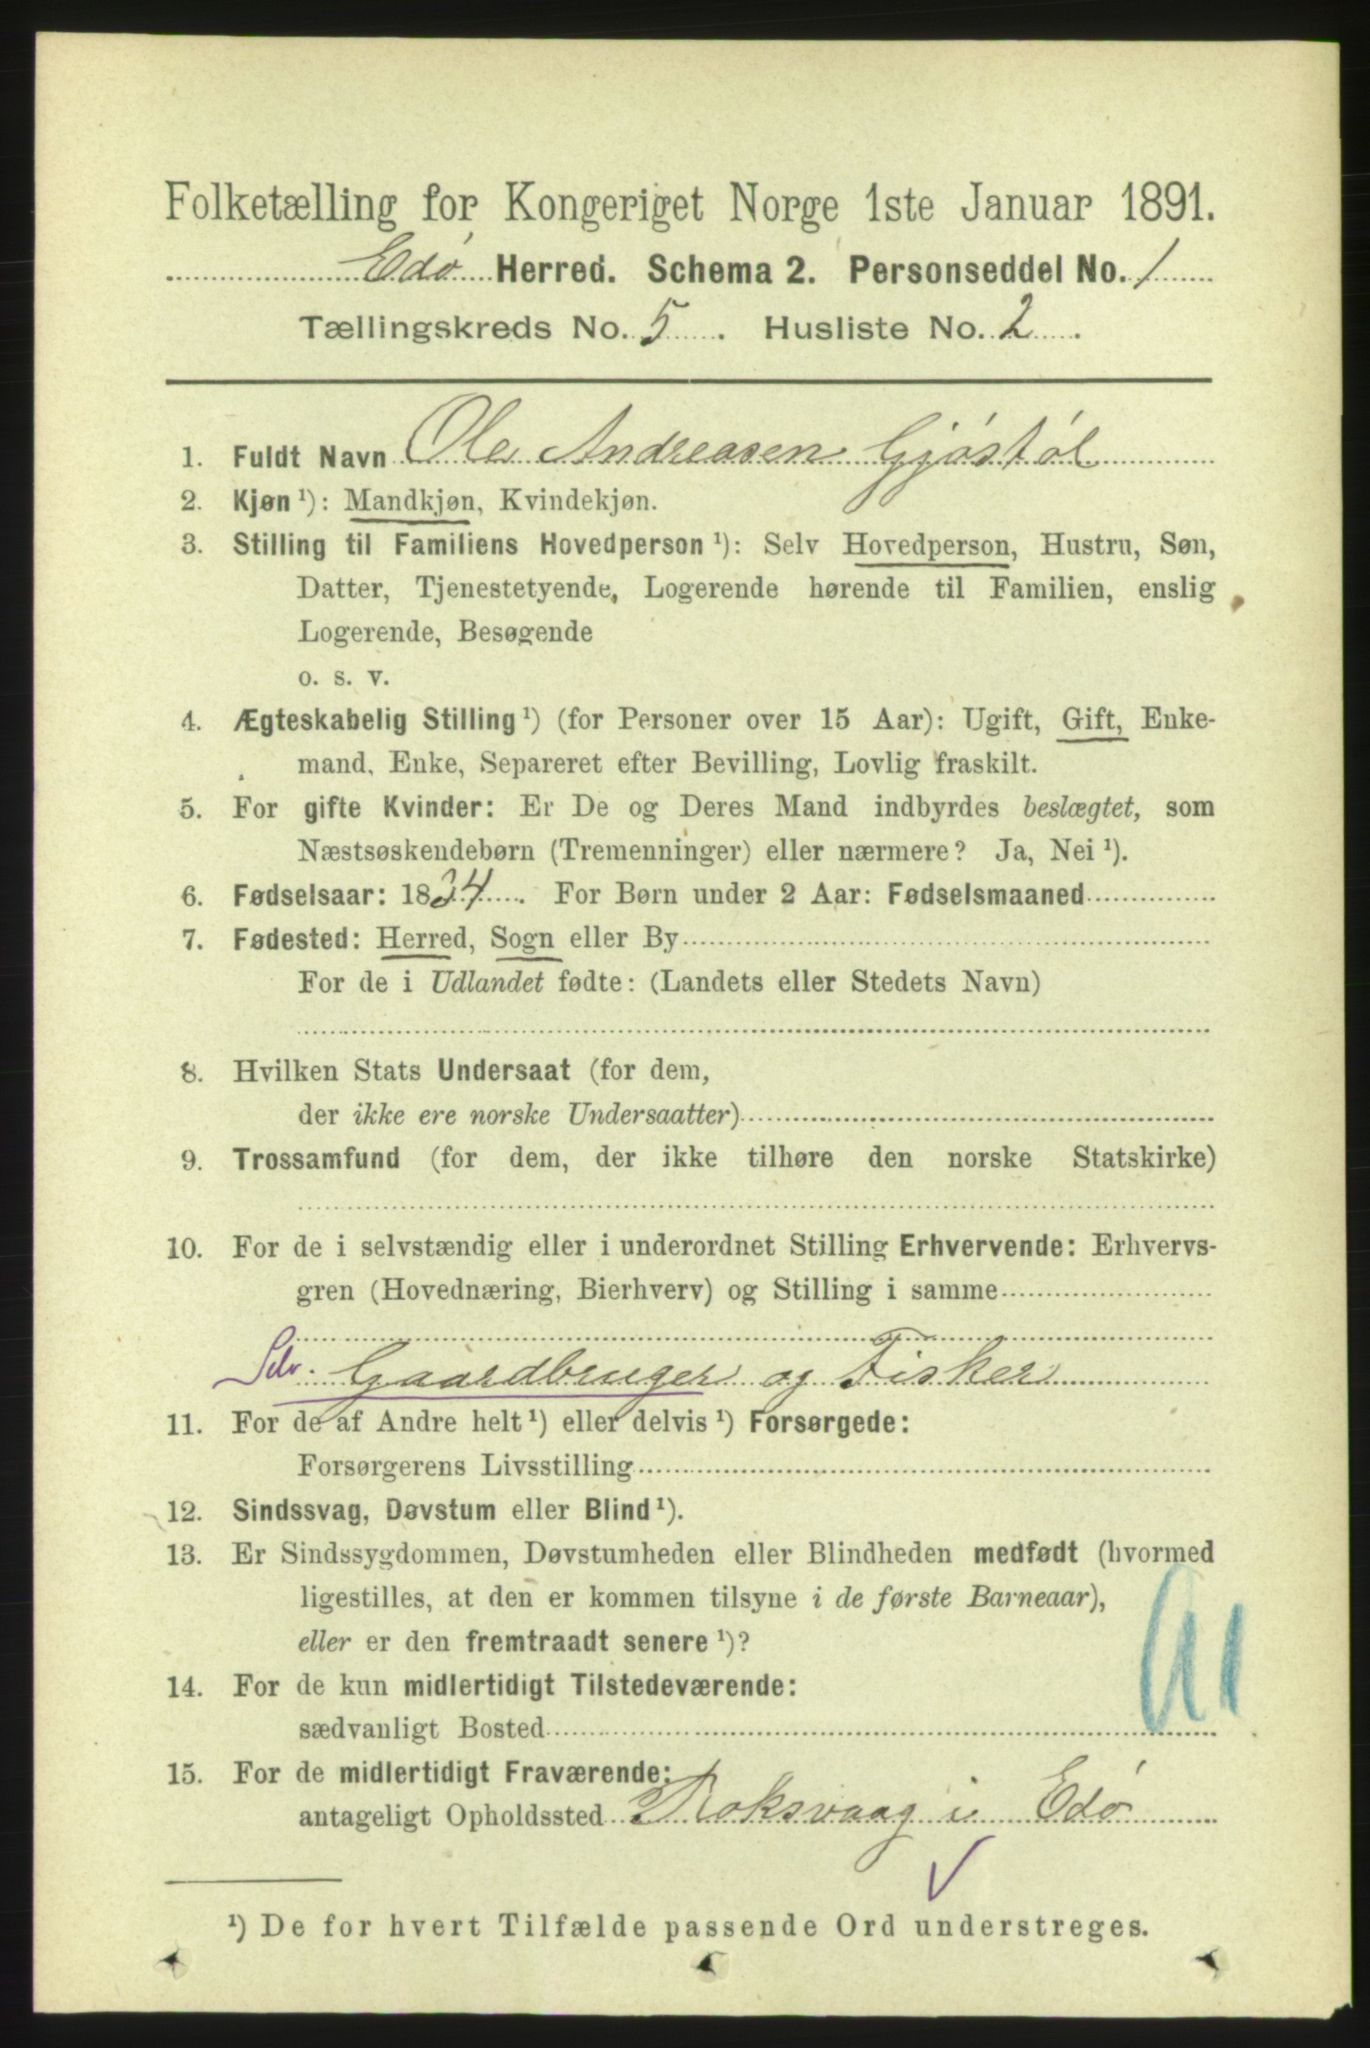 Folketælling for Kongeriget Norge 1ste Januar 1891.
Edø Herred. Schema 2. Personseddel No. 1
Tællingskreds No. 5. Husliste No. 2.
1. Fuldt Navn Ole Andreasen Gjøstøl
2. Kjøn ¹): Mandkjøn, Kvindekjøn.
3. Stilling til Familiens Hovedperson ¹): Selv Hovedperson, Hustru, Søn,
Datter, Tjenestetyende, Logerende hørende til Familien, enslig
Logerende, Besøgende
o. s. v.
4. Ægteskabelig Stilling ¹) (for Personer over 15 Aar): Ugift, Gift, Enke-
mand, Enke, Separeret efter Bevilling, Lovlig fraskilt.
5. For gifte Kvinder: Er De og Deres Mand indbyrdes beslægtet, som
Næstsøskendebørn (Tremenninger) eller nærmere? Ja, Nei ¹).
6. Fødselsaar: 1834. For Børn under 2 Aar: Fødselsmaaned
7. Fødested: Herred, Sogn eller By
For de i Udlandet fødte: (Landets eller Stedets Navn)
8. Hvilken Stats Undersaat (for dem,
der ikke ere norske Undersaatter)
9. Trossamfund (for dem, der ikke tilhøre den norske Statskirke)
10. For de i selvstændig eller i underordnet Stilling Erhvervende: Erhvervs-
gren (Hovednæring, Bierhverv) og Stilling i samme
Selv. Gaardbruger og Fisker
11. For de af Andre helt ¹) eller delvis ¹) Forsørgede:
Forsørgerens Livsstilling
12. Sindssvag, Døvstum eller Blind ¹).
13. Er Sindssygdommen, Døvstumheden eller Blindheden medfødt (hvormed
ligestilles, at den er kommen tilsyne i de første Barneaar),
eller er den fremtraadt senere ¹)?
14. For de kun midlertidigt Tilstedeværende:
sædvanligt Bosted
15. For de midlertidigt Fraværende:
antageligt Opholdssted Roksvaag i Edø
¹) De for hvert Tilfælde passende Ord understreges.